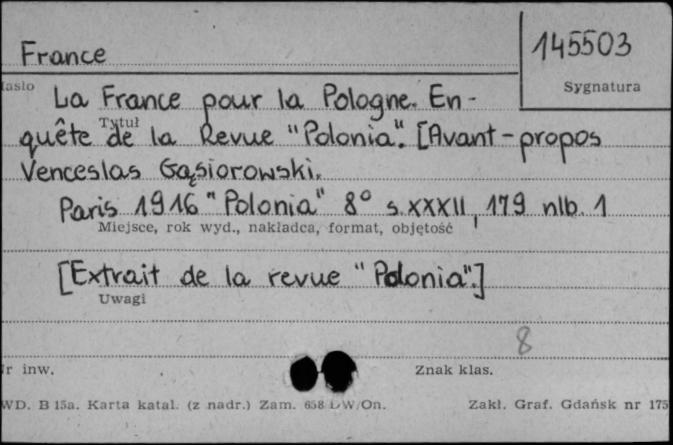 France
145503
Sygnatura
La France pour la Pologne. En-
Tytuł
quête de la Revue "Polonia". [Avant-propos
Venceslas Gąsiorowski.
Paris 1916 "Polonia" 8° s.XXXII, 179 nlb. 1
Miejsce, rok wyd., nakładca, format, objętość
[Extrait de la revue "Polonia".]
Uwagi
8
r inw.
Znak klas.
WD. B 15a. Karta katal. (z nadr.) Zam. 658 DW/On.
Zakł. Graf. Gdańsk nr 175